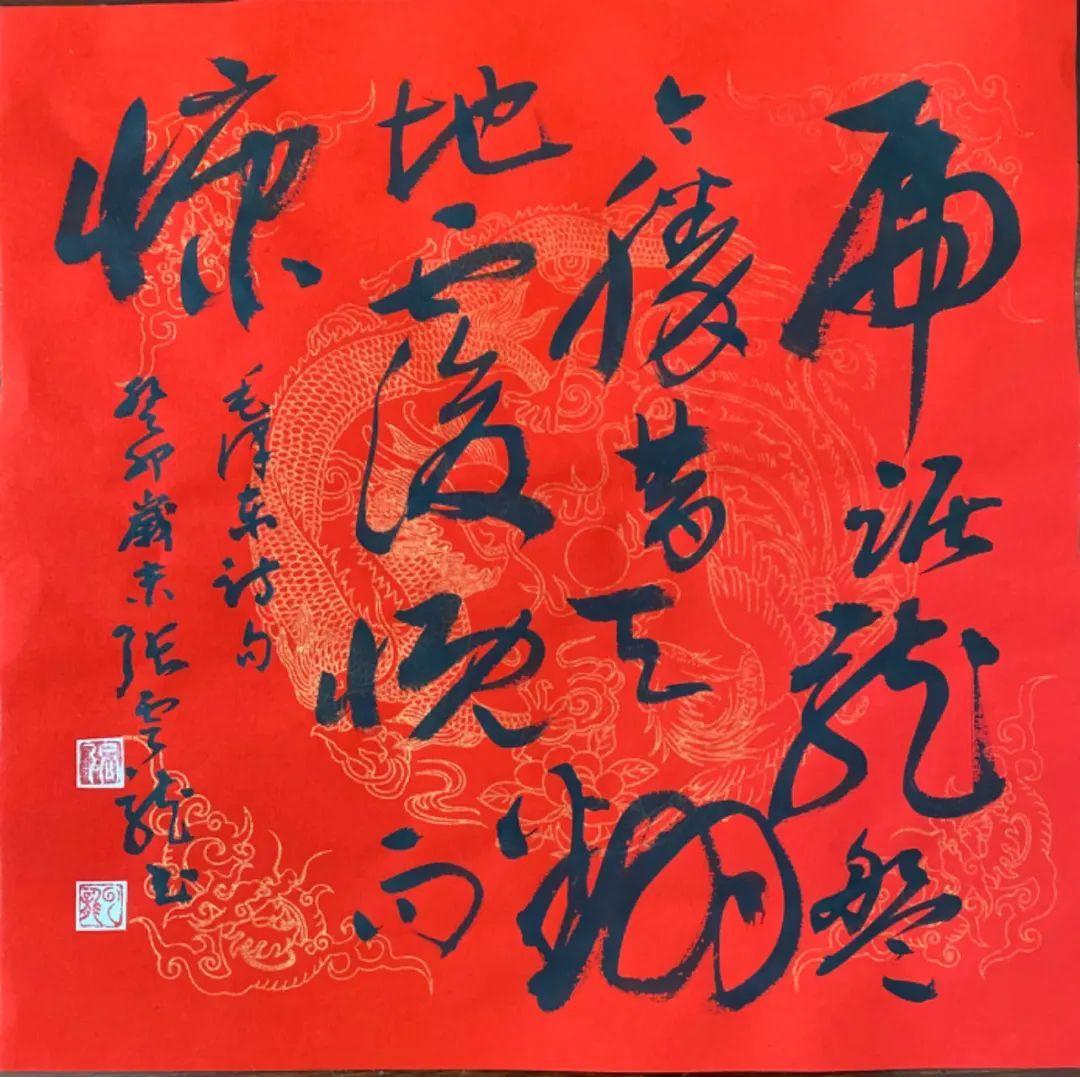 虎踞龍盤
今勝昔天翻
地覆慨而
慷
毛澤東詩句
癸卯歲末張雲龍書